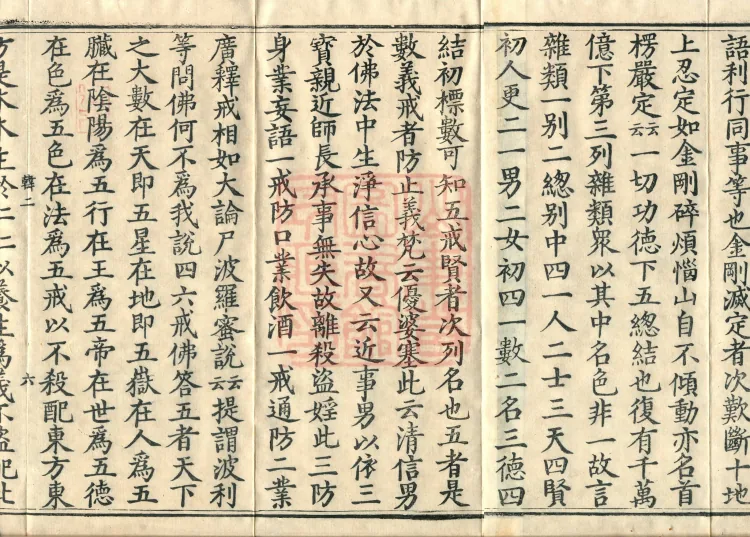 語利行同事等也金剛滅定者次歎斷十地
上忍定如金剛碎煩惱山自不傾動亦名首
楞嚴定云云一切功德下五總結也復有千萬
億下第三列雜類衆以其中名色非一故言
雜類一別二總別中四一人二士三天四賢
初人更二一男二女初四一數二名三德四
結初標數可知五戒賢者次列名也五者是
數義戒者防止義梵云優婆塞此云清信男
於佛法中生淨信心故又云近事男以依三
寶親近師長承事無失故離殺盜婬此三防
身業妄語一戒防口業飲酒一戒通防二業
廣釋戒相如大論尸波羅蜜說云云提謂波利
等問佛何不爲我說四六戒佛答五者天下
之大數在天即五星在地即五嶽在人爲五
臟在陰陽爲五行在王爲五帝在世爲五德
在色爲五色在法爲五戒以不殺配東方東
方是木木生於仁仁以養生爲義不盜配北
輯二
六